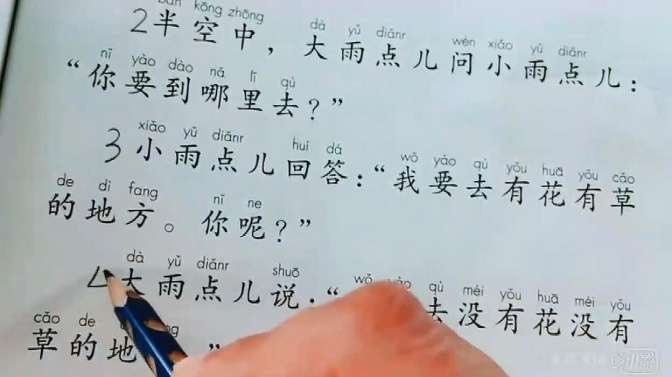 bàn kōng zhōng dà yǔ diǎnr wèn xiǎo yǔ diǎnr
2半空中，大雨点儿问小雨点儿：
nǐ yào dào nǎ lǐ qù
“你要到哪里去？”
xiǎo yǔ diǎnr huí dá wǒ yào qù yǒu huā yǒu cǎo
3小雨点儿回答：“我要去有花有草
de dì fang nǐ ne
的地方。你呢？”
dà yǔ diǎnr shuō wǒ yào qù méi yǒu huā méi yǒu
4大雨点儿说：“去没有花没有
cǎo de
草的地”